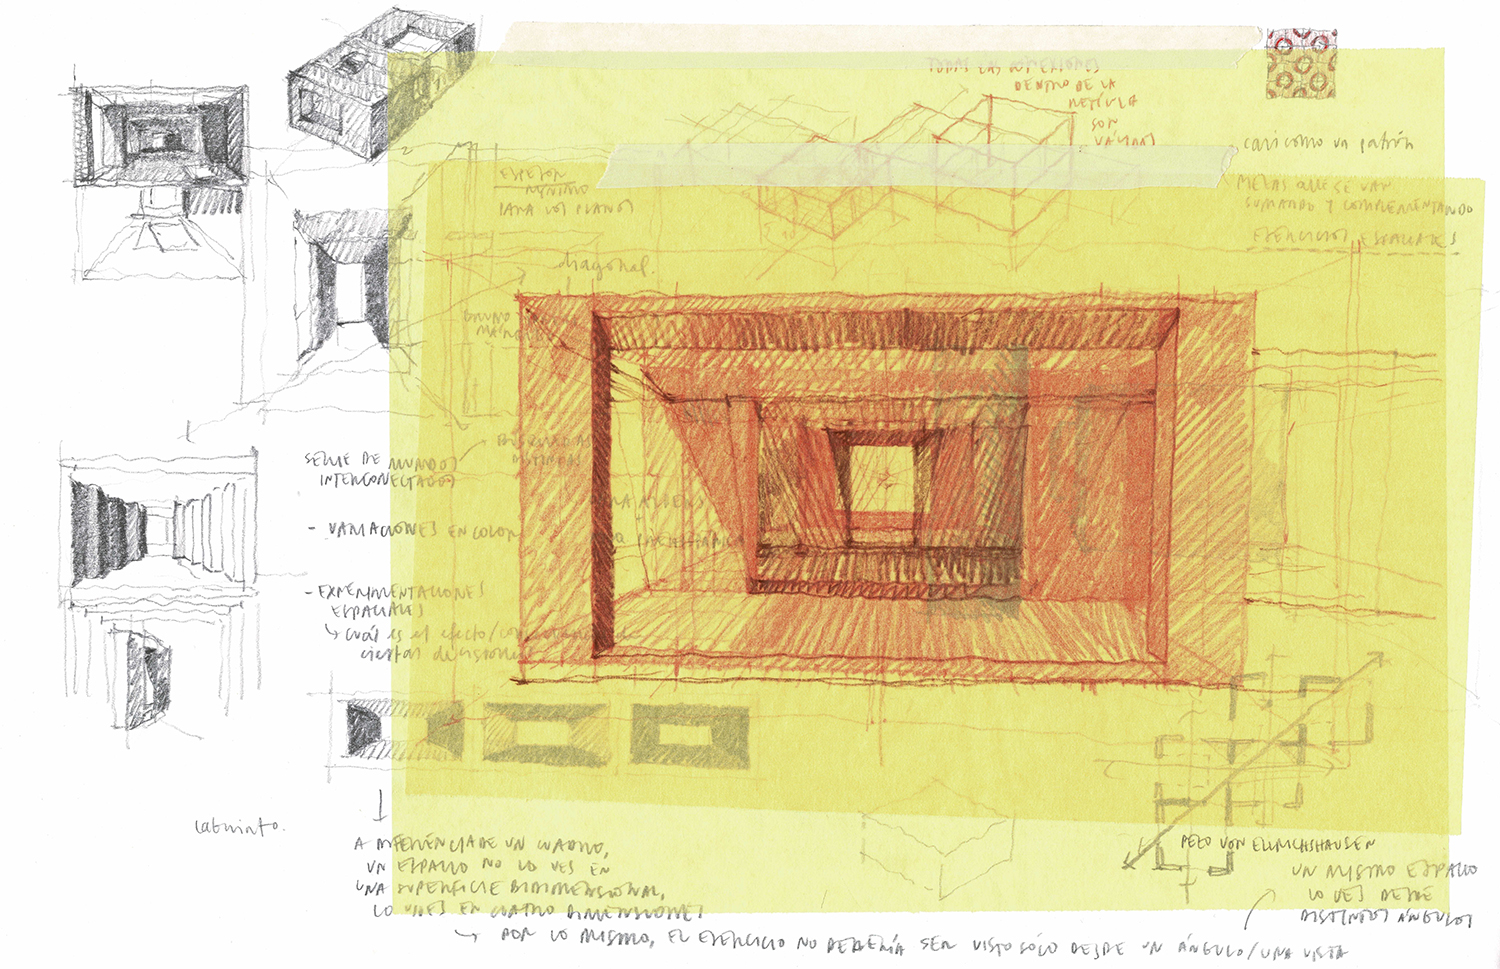 TODAS LAS
DENTRO DE LA
RETÍCULA
SON
VÁLIDAS
casi como un patrón
METAS QUE SE VAN
SUMANDO Y COMPLEMENTANDO
EJERCICIOS ESPACIALES
ESPESOR
MÍNIMO
PARA LOS PLANOS
diagonal.
BRUNO
DISTINTAS
SERIE DE MUNDOS
INTERCONECTADOS
- VARIACIONES EN COLOR
- EXPERIMENTACIONES
ESPACIALES
↳ cuál es el efecto/
ciertas decisiones
Laberinto.
A DIFERENCIA DE UN CUADRO,
UN ESPACIO NO LO VES EN
UNA SUPERFICIE BIDIMENSIONAL,
LO VIVES EN CUATRO DIMENSIONES
↪ POR LO MISMO, EL EJERCICIO NO DEBERÍA SER VISTO SÓLO DESDE UN ÁNGULO/UNA VISTA
PEZO VON ELLRICHSHAUSEN
UN MISMO ESPACIO
LO VES DESDE
DISTINTOS ÁNGULOS